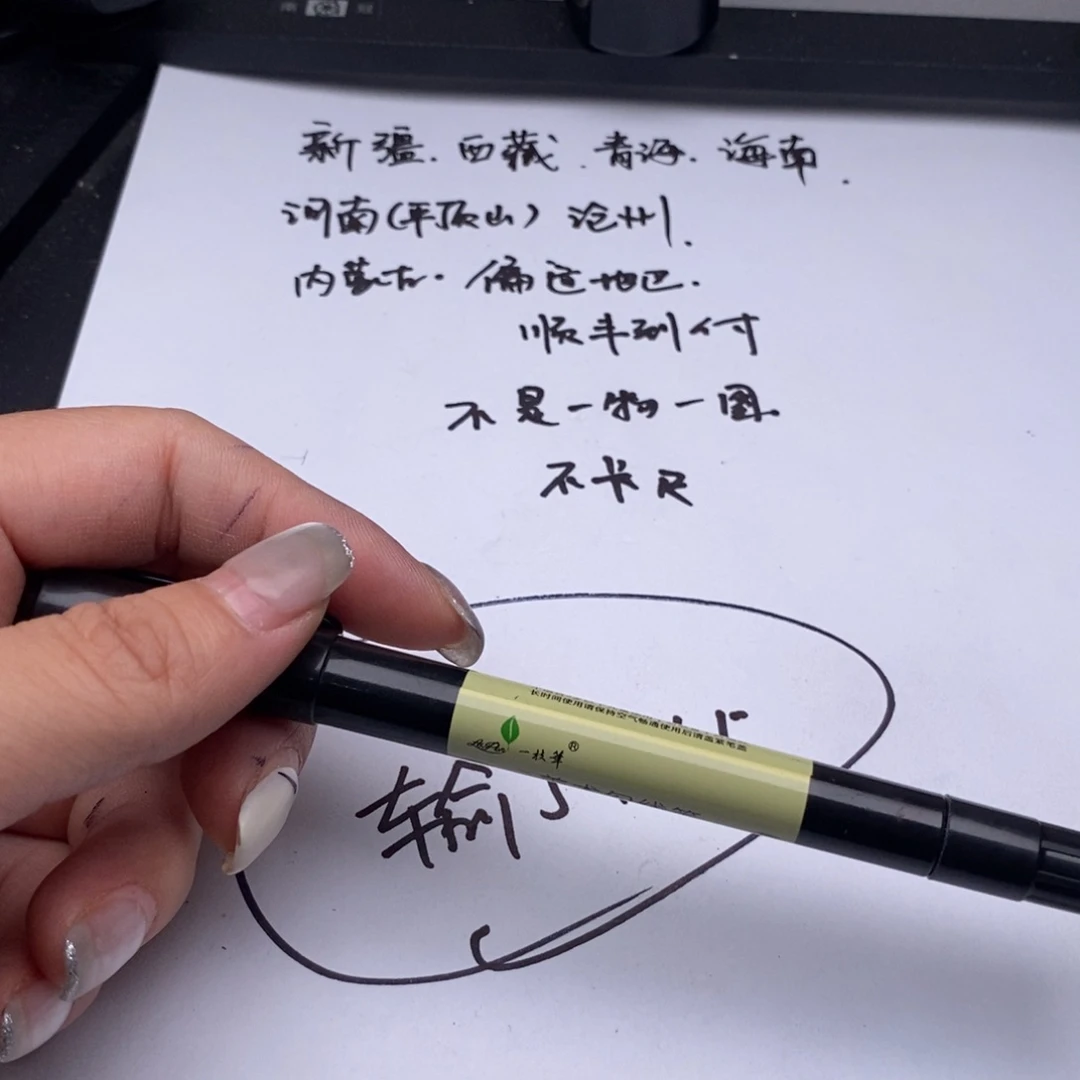 新疆.西藏.青海.海南.
河南(平顶山)沧州.
内蒙古.偏远地区.
顺丰到付
不是一物一图.
不卡尺
长时间使用请保持空气畅通使用后请盖紧笔盖
一枝笔®
输了